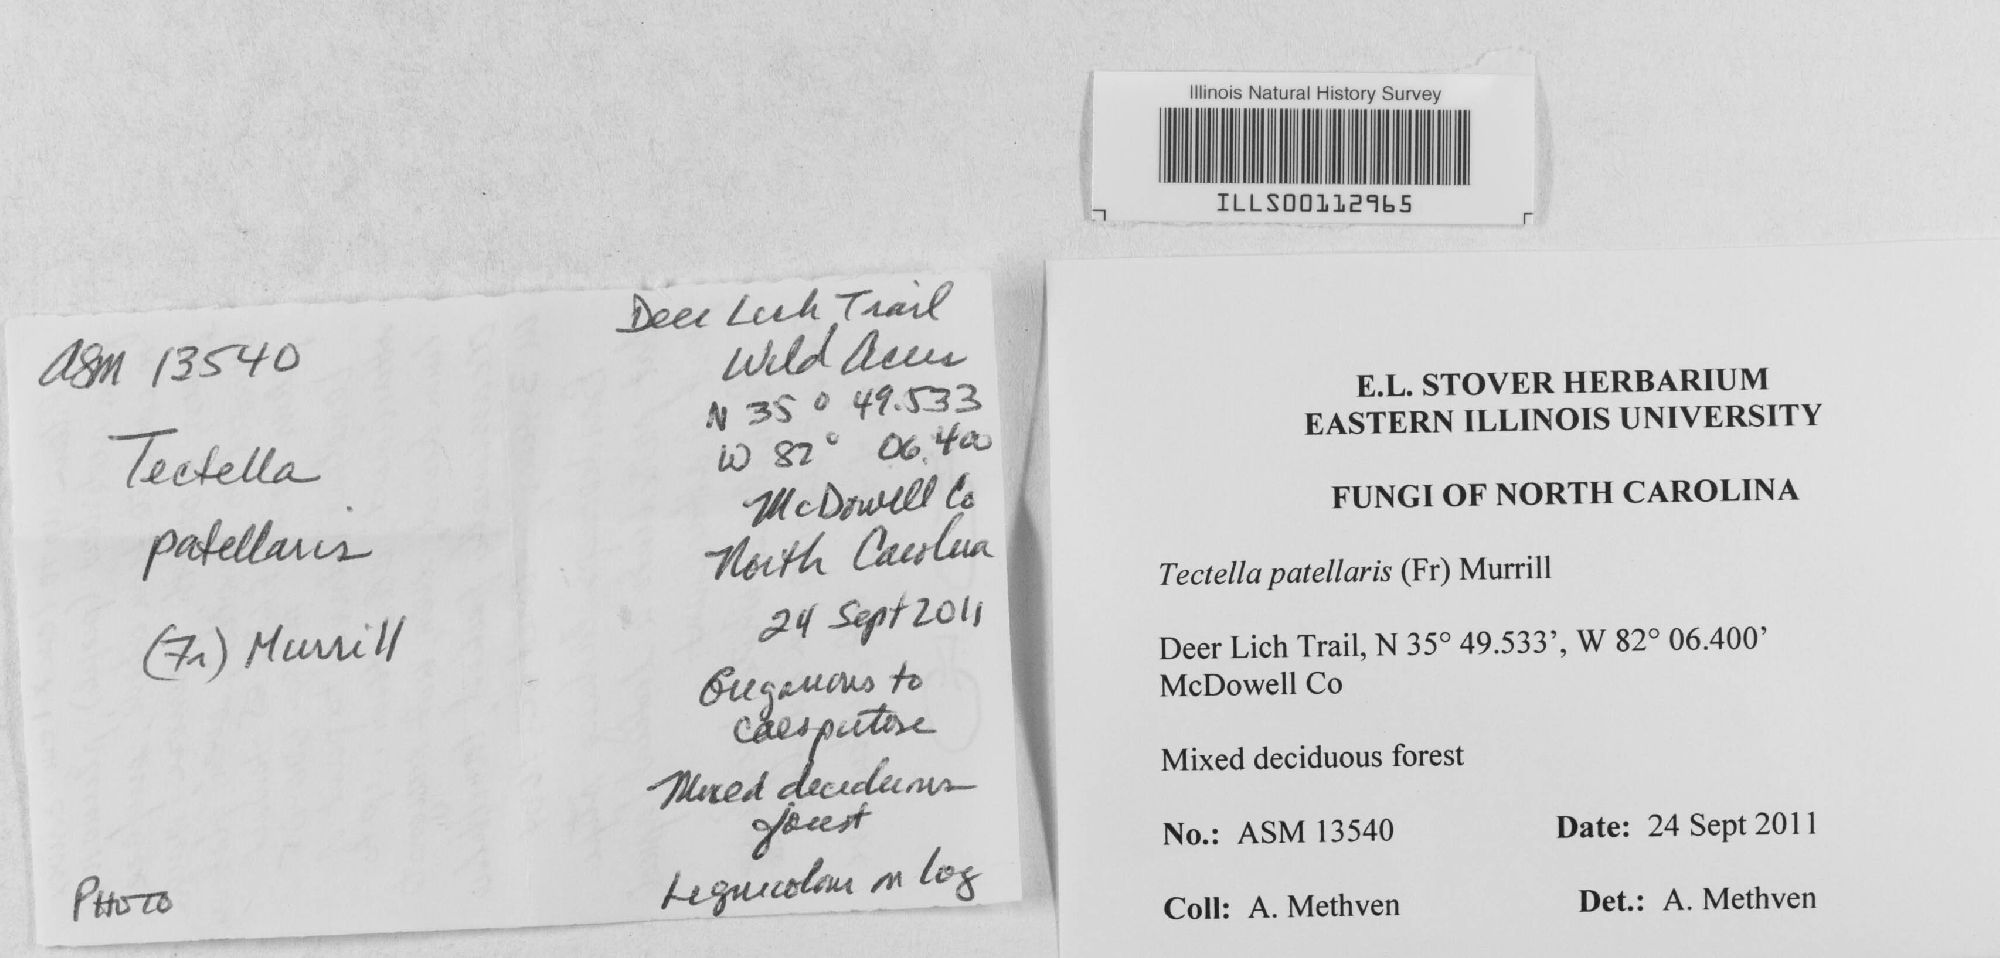 Illinois Natural History Survey
ILLS00112965
ASM 13540
Tectella
patellaris
(Fr) Murrill
PHOTO
Deer Lich Trail
Wild Acres
N 35° 49.533
W 82° 06.400
McDowell Co
North Carolina
24 Sept 2011
Gregarious to
caespitose
Mixed deciduous
forest
Lignicolous on log
E.L. STOVER HERBARIUM
EASTERN ILLINOIS UNIVERSITY
FUNGI OF NORTH CAROLINA
Tectella patellaris (Fr) Murrill
Deer Lich Trail, N 35° 49.533’, W 82° 06.400’
McDowell Co
Mixed deciduous forest
No.: ASM 13540 Date: 24 Sept 2011
Coll: A. Methven Det.: A. Methven